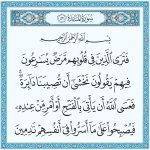 سورة المائدة
بسم الله الرحمن الرحيم
فَتَرَى الَّذِينَ فِي قُلُوبِهِم مَّرَضٌ يُسَارِعُونَ
فِيهِمْ يَقُولُونَ نَخْشَىٰ أَن تُصِيبَنَا دَائِرَةٌ
فَعَسَى اللَّهُ أَن يَأْتِيَ بِالْفَتْحِ أَوْ أَمْرٍ مِّنْ عِندِهِ
فَيُصْبِحُوا عَلَىٰ مَا أَسَرُّوا فِي أَنفُسِهِمْ نَادِمِينَ